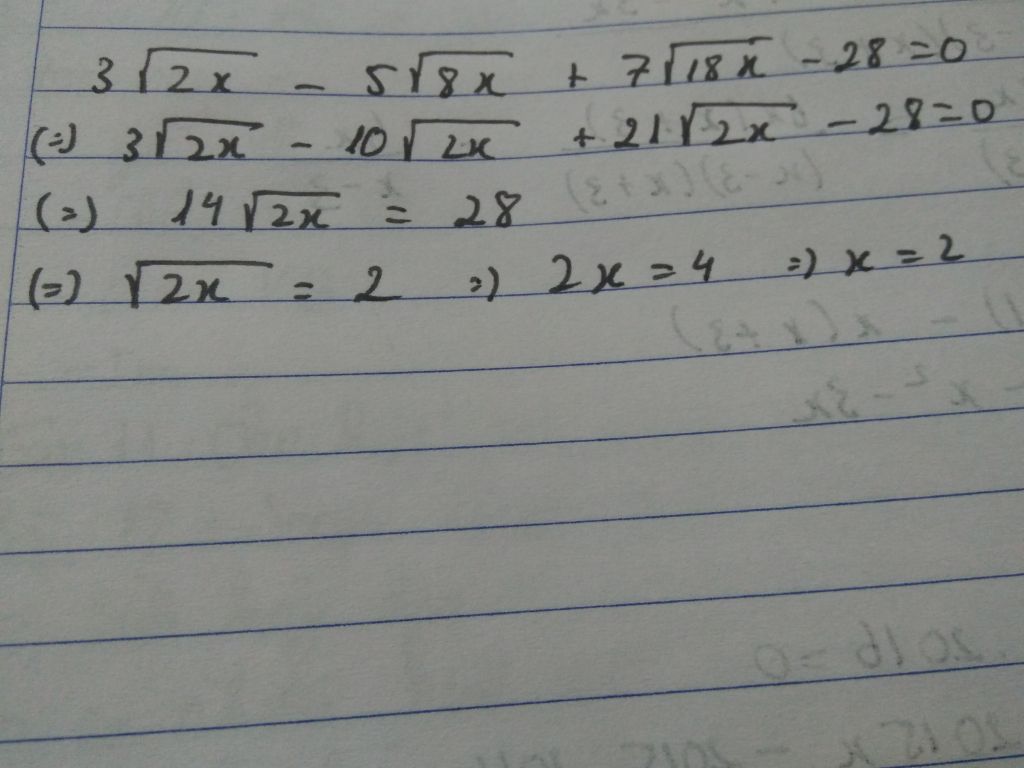 3√2x - 5√8x + 7√18x - 28 = 0
(=) 3√2x - 10√2x + 21√2x - 28 = 0
(=) 14√2x = 28
(=) √2x = 2 =) 2x = 4 =) x = 2